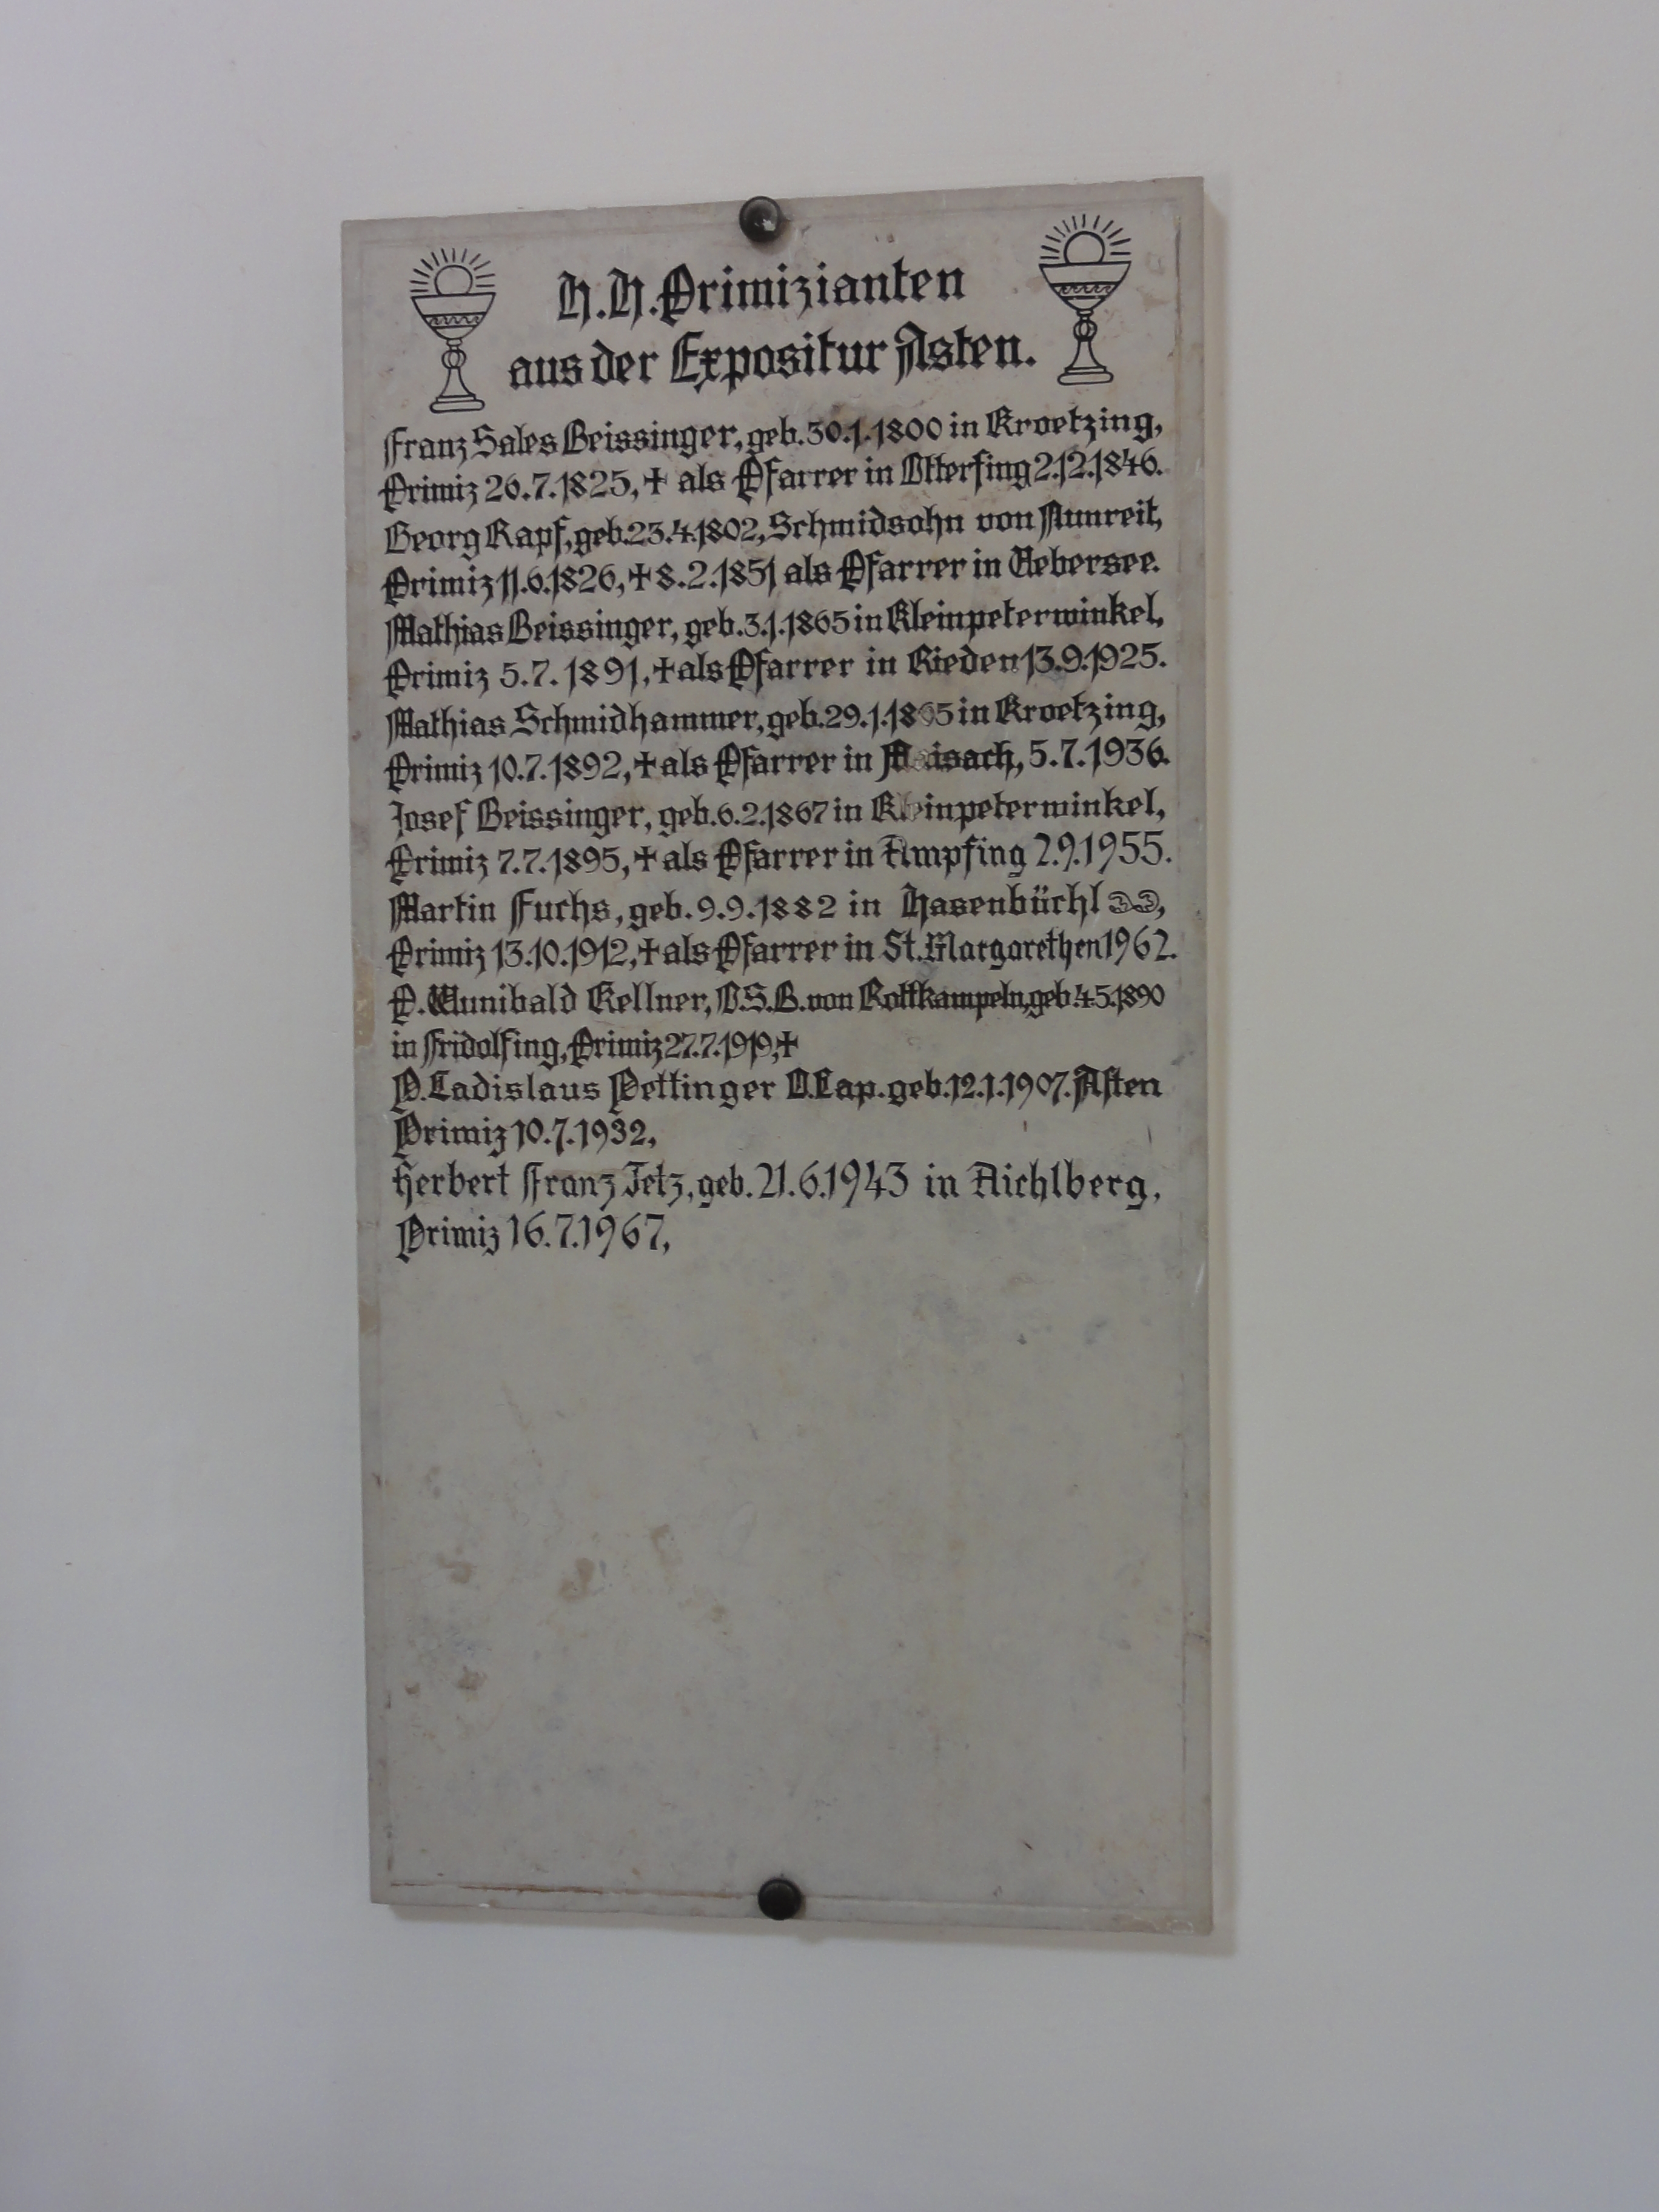 H.H. Primizianten
aus der Expositur Asten.
Franz Sales Beissinger, geb. 30.1.1800 in Kroetzing,
Primiz 26.7.1825, ✝ als Pfarrer in Otterfing 2.12.1846.
Georg Rapf, geb. 23.4.1802, Schmidsohn von Nunreit,
Primiz 11.6.1826, ✝ 8.2.1851 als Pfarrer in Uebersee.
Mathias Beissinger, geb. 3.1.1865 in Kleinpeterwinkel,
Primiz 5.7.1891, ✝ als Pfarrer in Rieden 13.9.1925.
Mathias Schmidhammer, geb. 29.1.1865 in Kroetzing,
Primiz 10.7.1892, ✝ als Pfarrer in Maisach, 5.7.1936.
Josef Beissinger, geb. 6.2.1867 in Kleinpeterwinkel,
Primiz 7.7.1895, ✝ als Pfarrer in Ampfing 2.9.1955.
Martin Fuchs, geb. 9.9.1882 in Hasenbüchl,
Primiz 13.10.1912, ✝ als Pfarrer in St. Margarethen 1962.
P. Wunibald Kellner, O.S.B. von Rottkampeln, geb. 4.5.1890
in Fridolfing, Primiz 27.7.1919, ✝
P. Ladislaus Pettinger O.Cap. geb. 12.1.1907. Asten
Primiz 10.7.1932,
Herbert Franz Jetz, geb. 21.6.1943 in Aichlberg,
Primiz 16.7.1967,